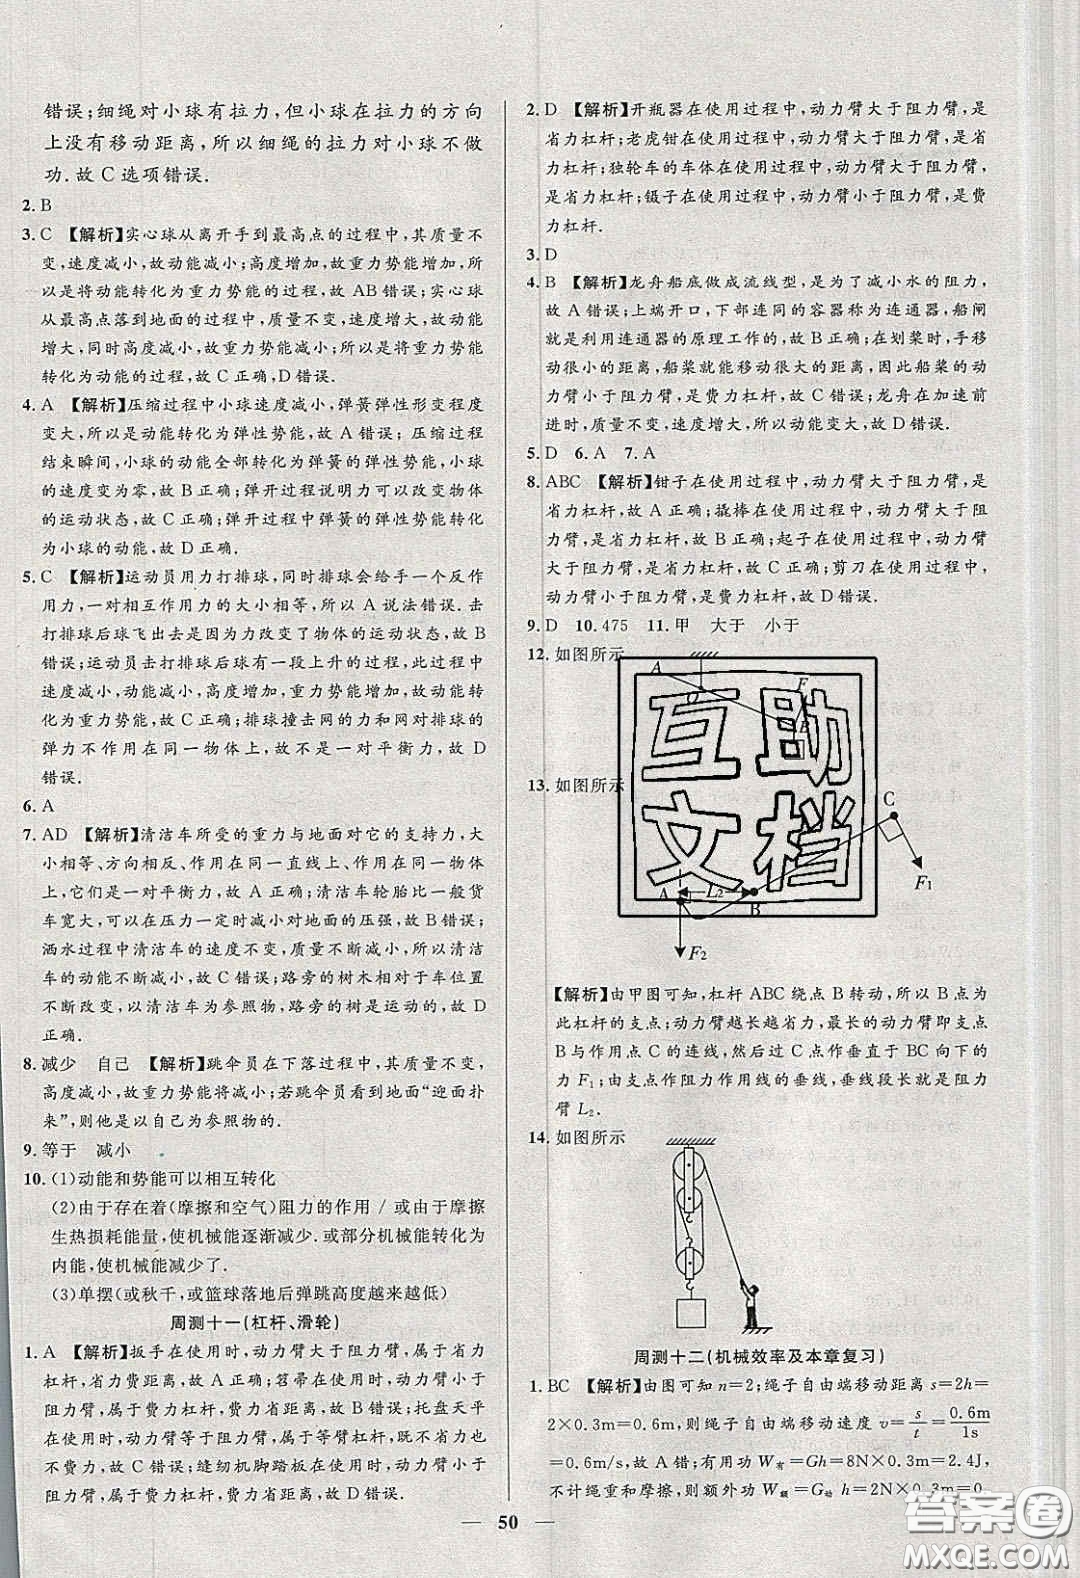 错误;细绳对小球有拉力,但小球在拉力的方向
上没有移动距离,所以细绳的拉力对小球不做
功.故C选项错误.
2. B
3. C 【解析】实心球从离开手到最高点的过程中,其质量不
变,速度减小,故动能减小;高度增加,故重力势能增加,所
以是将动能转化为重力势能的过程,故AB错误;实心球
从最高点落到地面的过程中,质量不变,速度增大,故动能
增大,同时高度减小,故重力势能减小;所以是将重力势能
转化为动能的过程,故C正确,D错误.
4. A 【解析】压缩过程中小球速度减小,弹簧弹性形变程度
变大,所以是动能转化为弹性势能,故A错误;压缩过程
结束瞬间,小球的动能全部转化为弹簧的弹性势能,小球
的速度变为零,故B正确;弹开过程说明力可以改变物体
的运动状态,故C正确;弹开过程中弹簧的弹性势能转化
为小球的动能,故D正确.
5. C 【解析】运动员用力打排球,同时排球会给手一个反作
用力,一对相互作用力的大小相等,所以A说法错误.击
打排球后球飞出去是因为力改变了物体的运动状态,故B
错误;运动员击打排球后球有一段上升的过程,此过程中
速度减小,动能减小,高度增加,重力势能增加,故动能转
化为重力势能,故C正确;排球撞击网的力和网对排球的
弹力不作用在同一物体上,不是一对平衡力,故D
错误.
6. A
7. AD 【解析】清洁车所受的重力与地面对它的支持力,大
小相等、方向相反、作用在同一直线上、作用在同一物体
上,它们是一对平衡力,故A正确;清洁车轮胎比一般货
车宽大,可以在压力一定时减小对地面的压强,故B错误;
洒水过程中清洁车的速度不变,质量不断减小,所以清洁
车的动能不断减小,故C错误;路旁的树木相对于车位置
不断改变,以清洁车为参照物,路旁的树是运动的,故D
正确.
8. 减少 自己 【解析】跳伞员在下落过程中,其质量不变,
高度减小,故重力势能减小;若跳伞员看到地面“迎面扑
来”,则他是以自己为参照物的.
9. 等于 减小
10. (1)动能和势能可以相互转化
(2)由于存在着(摩擦和空气)阻力的作用/或由于摩擦
生热损耗能量,使机械能逐渐减少.或部分机械能转化为
内能,使机械能减少了.
(3)单摆(或秋千,或篮球落地后弹跳高度越来越低)
周测十一(杠杆、滑轮)
1. A 【解析】扳手在使用时,动力臂大于阻力臂,属于省力
杠杆,省力费距离,故A正确;笤帚在使用时,动力臂小于
阻力臂,属于费力杠杆,费力省距离,故B错误;托盘天平
在使用时,动力臂等于阻力臂,属于等臂杠杆,既不省力也
不费力,故C错误;缝纫机脚踏板在使用时,动力臂小于
阻力臂,属于费力杠杆,费力省距离,故D错误.
2. D 【解析】开瓶器在使用过程中,动力臂大于阻力臂,是
省力杠杆;老虎钳在使用过程中,动力臂大于阻力臂,是省
力杠杆;独轮车的车体在使用过程中,动力臂大于阻力臂,
是省力杠杆;镊子在使用过程中,动力臂小于阻力臂,是费
力杠杆.
3. D
4. B 【解析】龙舟船底做成流线型,是为了减小水的阻力,
故A错误;上端开口,下部连同的容器称为连通器,船闸
就是利用连通器的原理工作的,故B正确;在划桨时,手移
动很小的距离,船桨就能移动很大的距离,因此船桨的动
力臂小于阻力臂,是费力杠杆,故C错误;龙舟在加速前
进时,质量不变,速度增大,动能变大,故D错误.
5. D 6. A 7. A
8. ABC 【解析】钳子在使用过程中,动力臂大于阻力臂,
是省力杠杆,故A正确;撬棒在使用过程中,动力臂大于阻力
臂,是省力杠杆,故B正确;起子在使用过程中,动力臂大
于阻力臂,是省力杠杆,故C正确;剪刀在使用过程中,动
力臂小于阻力臂,是费力杠杆,故D错误.
9. D 10. 475 11. 甲 大于 小于
12. 如图所示
A
O
F
B
13. 如图所示
C
F₁
A
L₂
B
F₂
互助
文档
【解析】由甲图可知,杠杆ABC绕点B转动,所以B点为
此杠杆的支点;动力臂越长越省力,最长的动力臂即支点
B与作用点C的连线,然后过C点作垂直于BC向下的
力F₁;由支点作阻力作用线的垂线,垂线段长就是阻力
臂L₂.
14. 如图所示
周测十二(机械效率及本章复习)
1. BC 【解析】由图可知n=2;绳子自由端移动距离s=2h=
2×0.3m=0.6m,则绳子自由端移动速度v=s/t=0.6m/1s=
0.6m/s,故A错;有用功W有=Gh=8N×0.3m=2.4J,
不计绳重和摩擦,则额外功W额=G动h=2N×0.3m=0.
50
答案圈
MXQE.COM